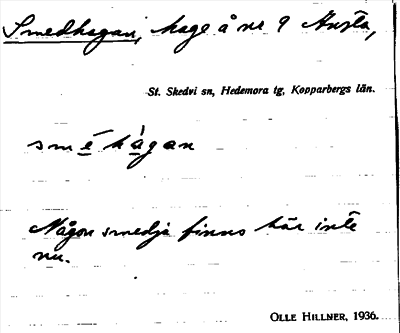 Smedhagan, hage å nr 9 Husta,
St. Skedvi sn, Hedemora tg, Kopparbergs län.
smé hàgan
Någon smedja finns här inte
nu.
OLLE HILLNER, 1936.